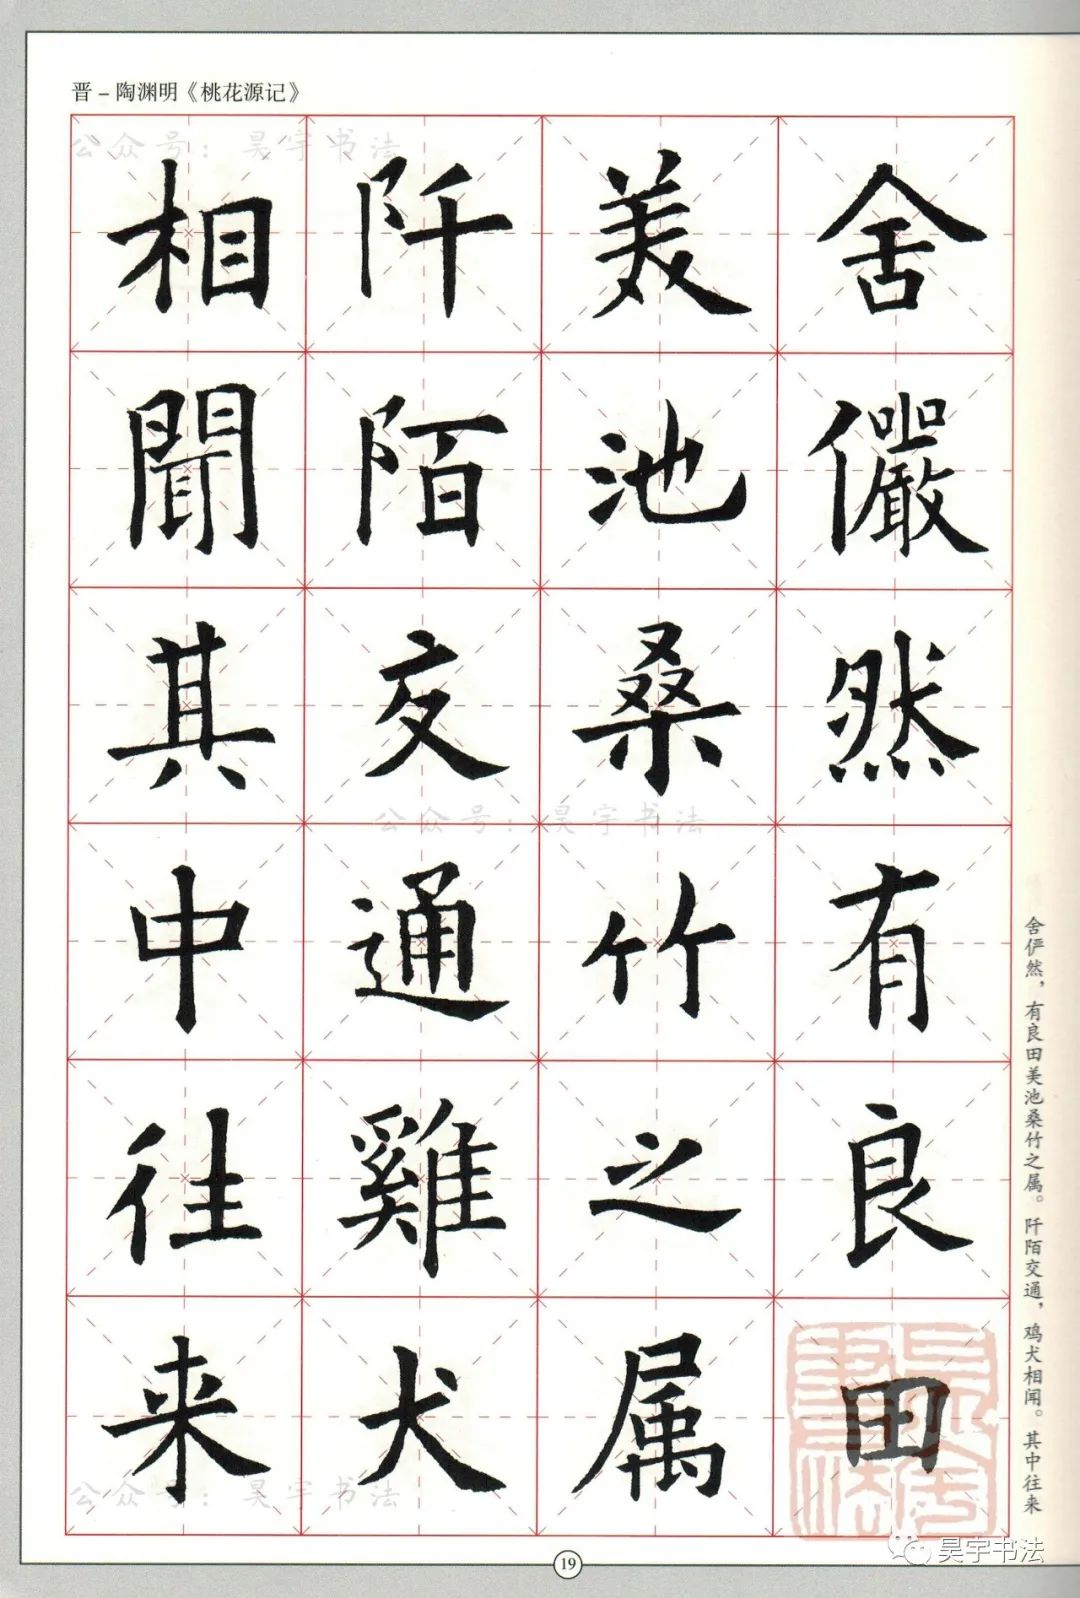 晋－陶渊明《桃花源记》
公众号：昊宇书法
舍儼然有良田
美池桑竹之属
阡陌交通雞犬
相聞其中往来
公众号：昊宇书法
公众号：昊宇书法
舍俨然，有良田美池桑竹之属。阡陌交通，鸡犬相闻。其中往来
昊宇书法
19
昊宇书法